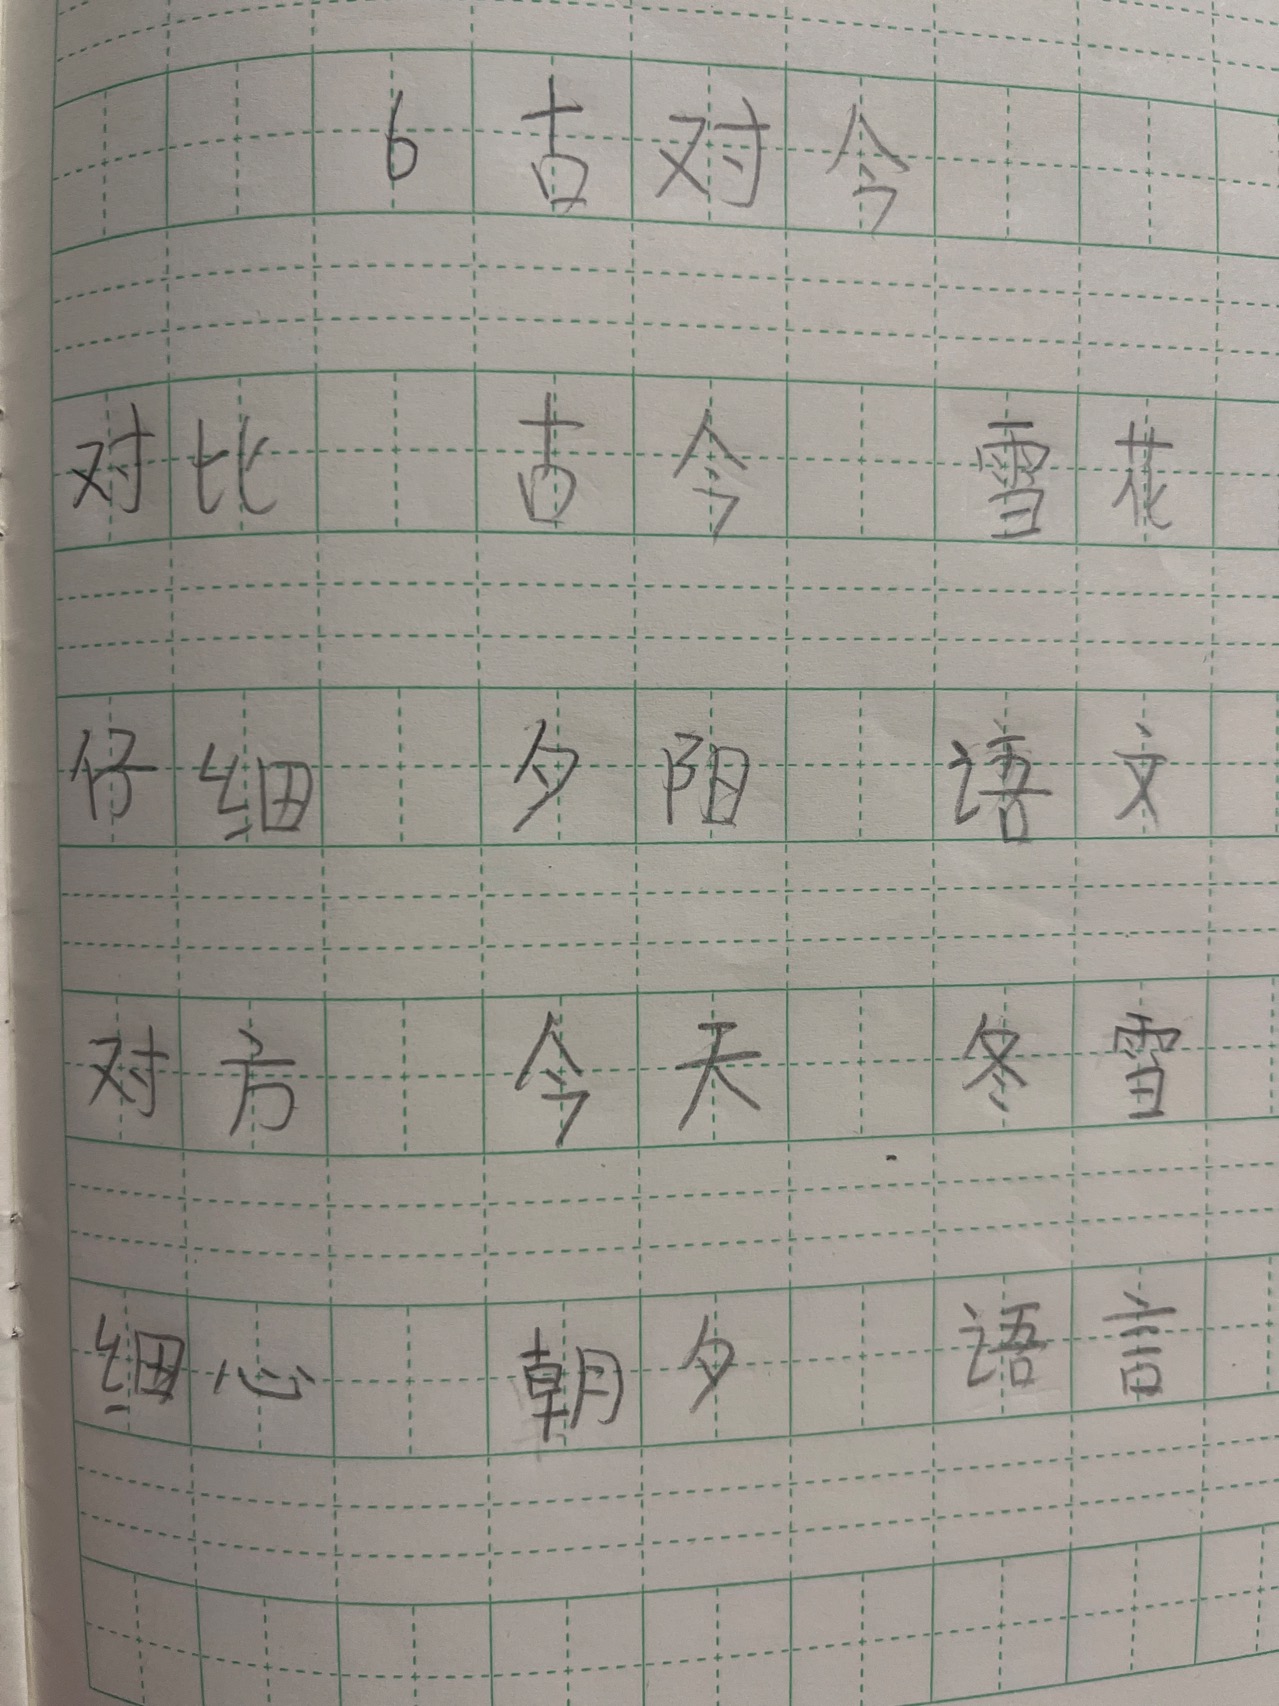 6 古对今
对比 古今 雪花
仔细 夕阳 语文
对方 今天 冬雪
细心 朝夕 语言